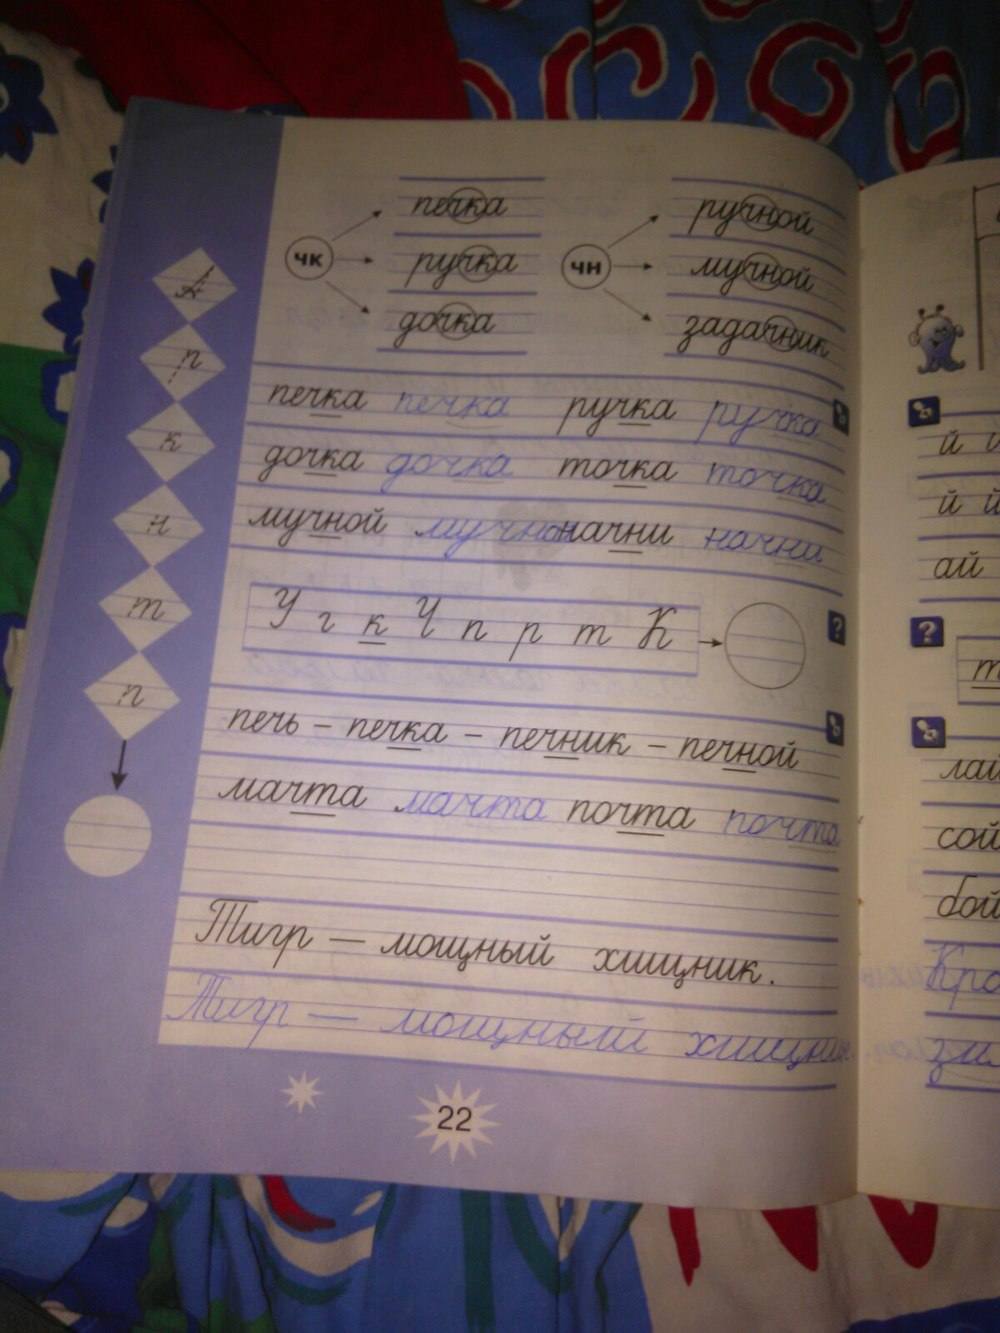 печка ручной
чк ручка чн мучной
дочка задачник
А
п
к
н
т
п
печка печка ручка ручка
дочка дочка точка точка
мучной мучной начни начни
У г к Ч п р т К
?
печь – печка – печник – печной
мачта мачта почта почта
Тигр — мощный хищник.
Тигр — мощный хищник.
22
й
й й
ай
?
т
сой
бой
Кра